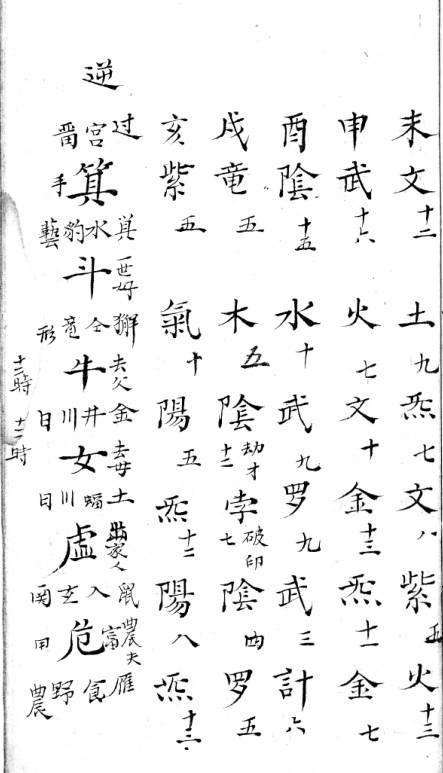 未文十二土九炁七文八紫五火十三
申武十六火七文十金十三炁十一金七
酉陰十五水十武九罗九武三計六
戌竜五木五陰十二劫才孛七破印陰四罗五
亥紫五氣十陽五炁十二陽八炁十三
逆
过宮
箕手
箕水豹藝
斗一世好
獬仝竜形
牛去父
金井川日
女去母
土蝠川日
虛出家人
鼠入玄
危富農夫
雁食野農
十三時
十二時